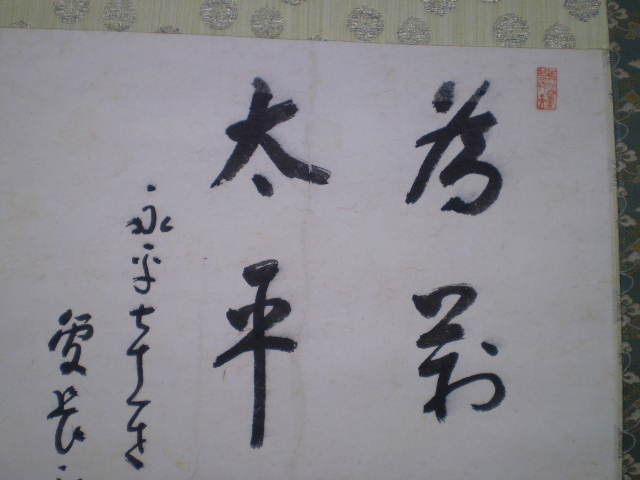 為萬
太平
永平七十一世